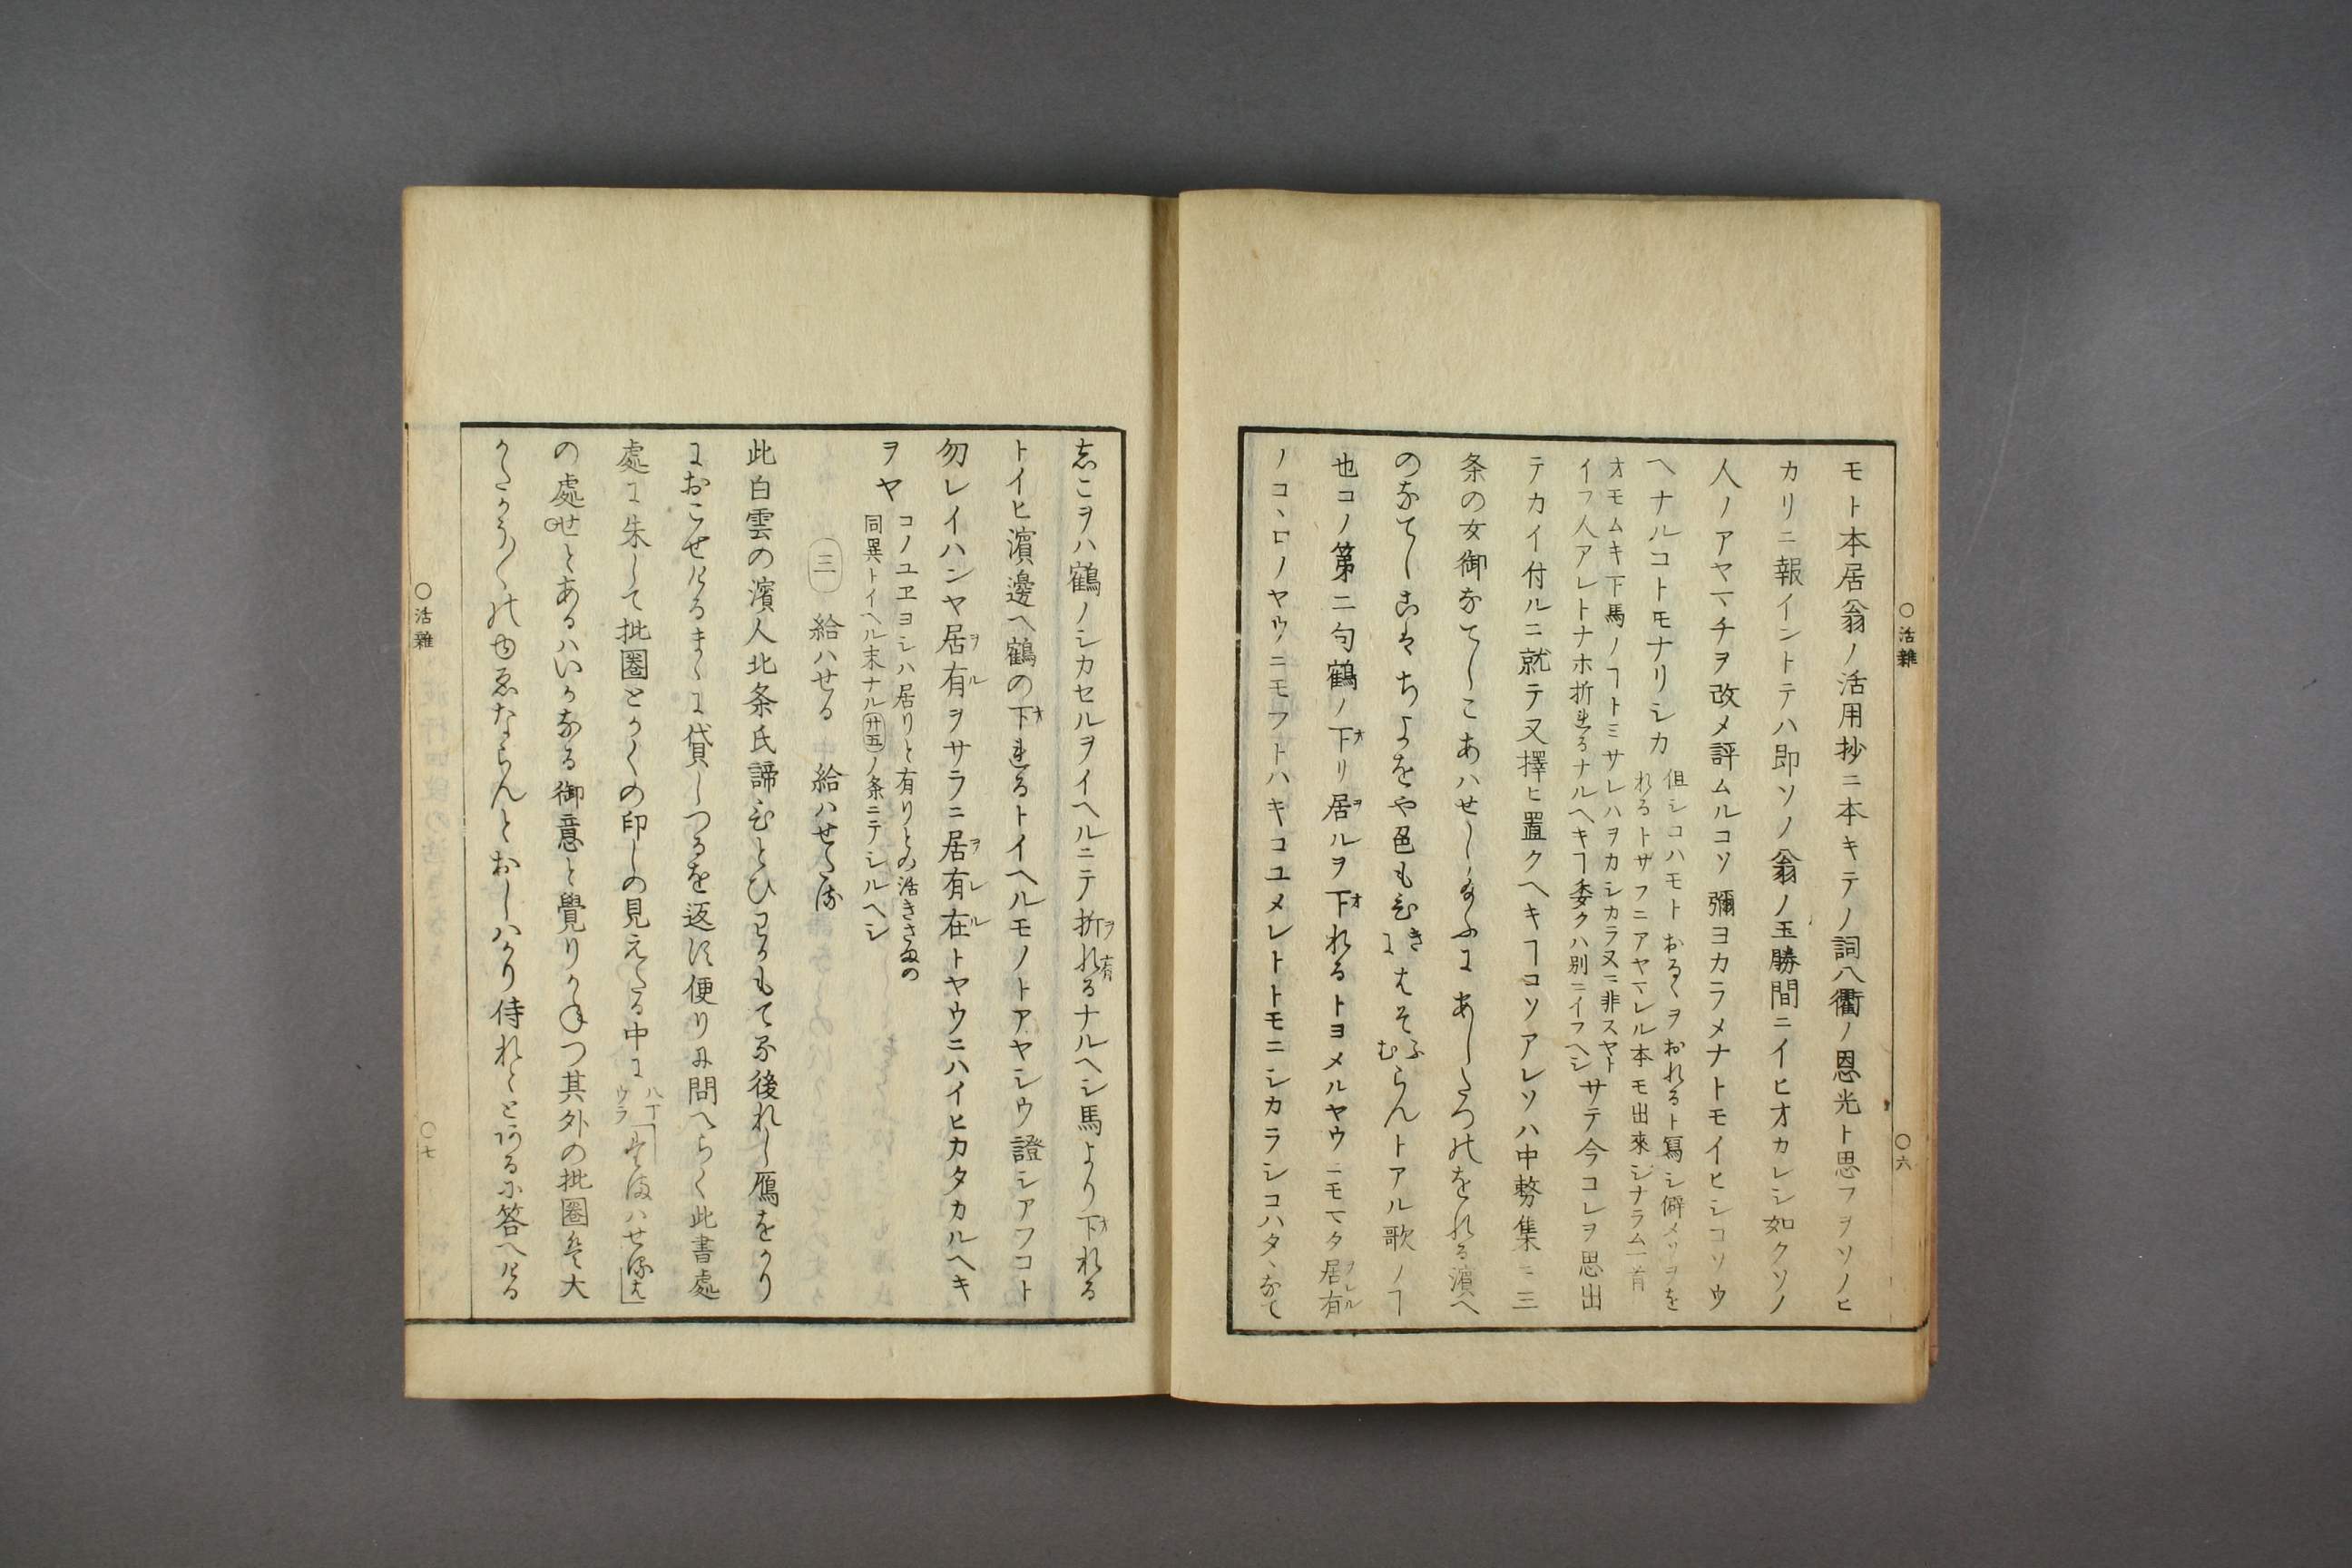 ○活雜
○六
モト本居翁ノ活用抄ニ本キテノ詞八衢ノ恩光ト思フヲソノヒ
カリニ報イントテハ即ソノ翁ノ玉勝間ニイヒオカレシ如クソノ
人ノアヤマチヲ改メ評ムルコソ彌ヨカラメナトモイヒシコソウ
ヘナルコトモナリシカ
但シコハモトおるゝヲおれるト寫シ僻メソヲを
れるトザフニアヤマレル本モ出來ジナラム一首
オモムキ下馬ノヿトミサレハヲカシカラヌニ非スヤト
イフ人アレトナホ折れるナルヘキヿ委クハ別ニイフヘシ
サテ今コレヲ思出
テカイ付ルニ就テ又擇ヒ置クヘキヿコソアレソハ中務集ニ三
条の女御なてしこあハせし給ふにあしたつのをれる濱へ
のなてしこはちよをや色もむきにはそふむらんトアル歌ノヿ
也コノ第二句鶴ノ下オリ居ヲルヲ下オれるトヨメルヤウニモマタ居有ヲレル
ノコヽロノヤウニモフトハキコユメレトトモニシカラシコハタヽなて
しこヲハ鶴ノシカセルヲイヘルニテ折ヲれ有るナルヘシ馬より下オれる
トイヒ濱邊へ鶴の下オれるトイヘルモノトアヤシウ證シアフコト
勿レイハンヤ居ヲ有ルヲサラニ居ヲ有レ在ルトヤウニハイヒカタカルヘキ
ヲヤ
コノユヱヨシハ居りと有りとの活きさまの
同異トイヘル末ナル廿五ノ条ニテシルヘシ
三 給ハせる 給ハせたる
此白雲の濱人北条氏諦むとひわかもて歸後れし雁をかり
におこせけるまゝに貸しつるを返に便りに問へらく此書處
處に朱して批圏とかくの印しの見えたる中に 八丁ウラ
の處せとあるハいかなる御意と覺りかねつ其外の批圏は大
かたかう〳〵のゆゑならんとおしハかり侍れととあるに答へける
○活雜
○七